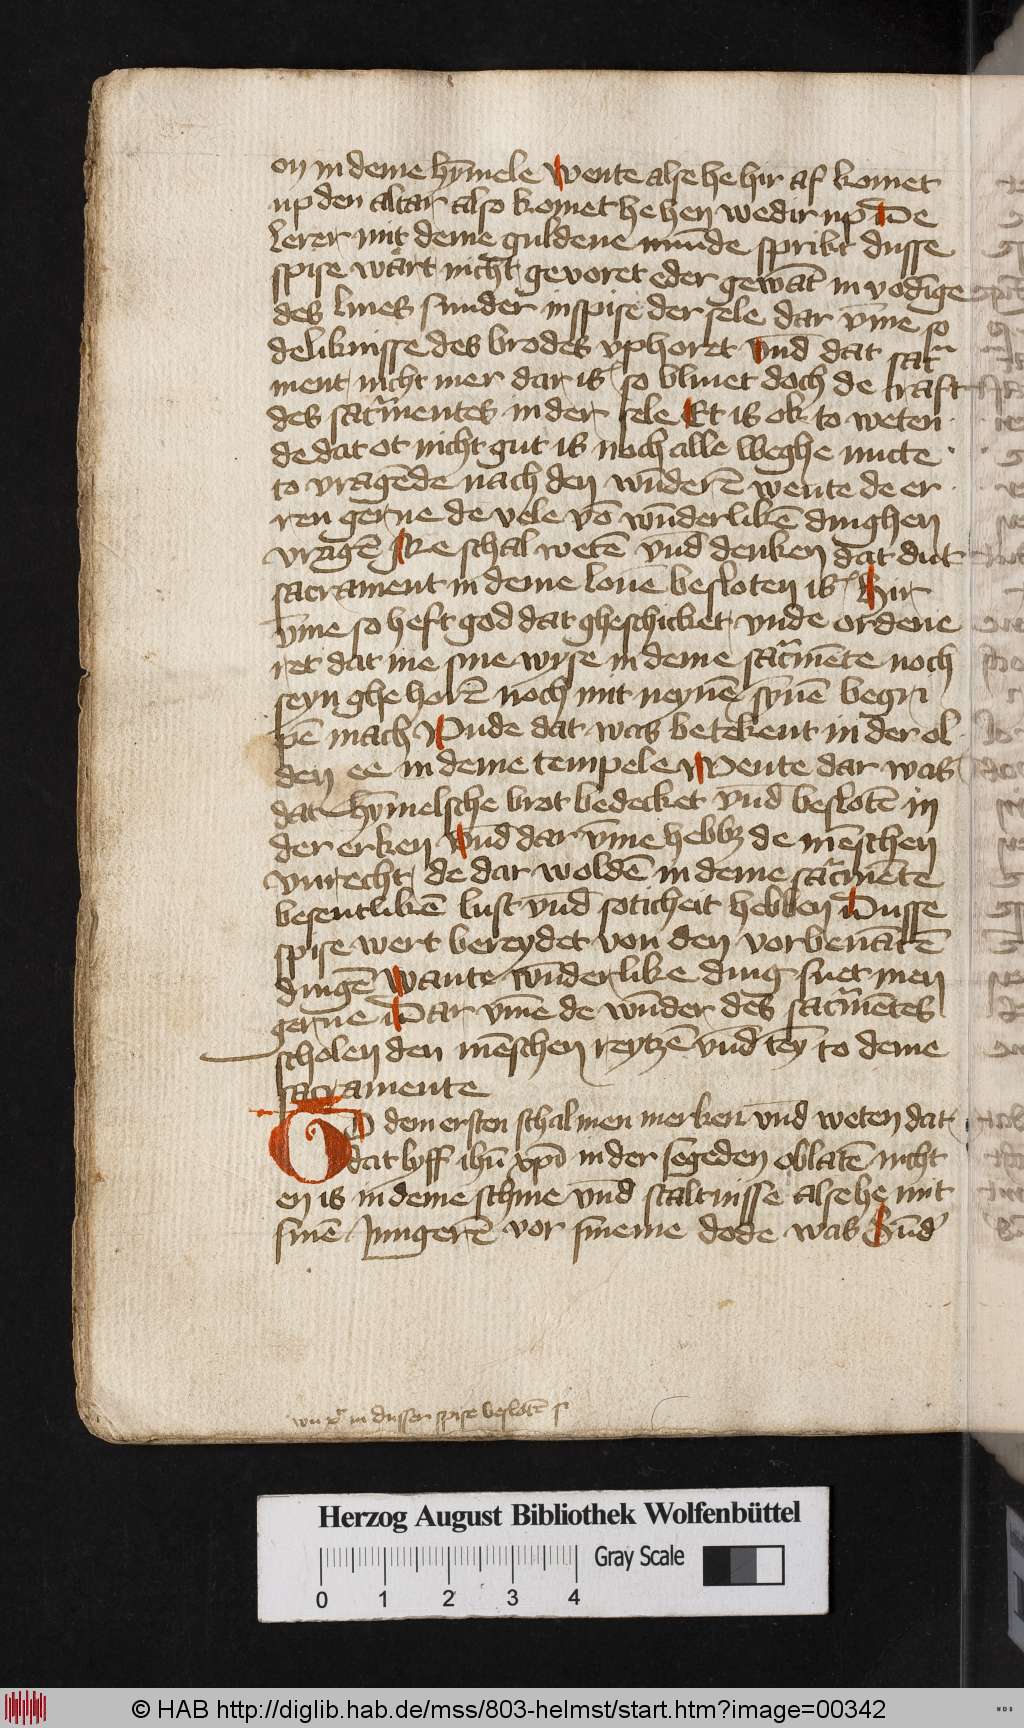 on in deme hȳmele Wente alse he hir af komet
up den altar also komet he hen wedir up De
lerer mit deme guldene mūde sprikt dusse
spise wart nicht gevoret eder gewāt in vodīge
des lives sunder in spise der sele dar vm̄e so
deliknisse des brodes vphoret vnd̄ dat sacr̄
ment nicht mer dar is so blivet doch de craft
des sacr̄mentes in der sele Et is ok to weten
de dat ot nicht gut is noch alle weghe nutte
to vragēde nach den wūderē wente de er
ren gerne de vele vō wūderlikē dinghen
vragē Me schal wetē vnd̄ denken dat dut
sacrament in deme lovē besloten is Hir
vm̄e so heft god dat gheschicket vnde ordene
ret dat me sine wyse in deme sacr̄mēte noch
seyn ghe horē noch mit neynē synē begri
pē mach Vnde dat was betekent in der ol
den ee in deme tempele Wente dar was
dat hȳmelsche brot bedecket vnd̄ beslotē in
der erken vnd̄ dar vm̄e hebbꝫ de mēschen
vnrecht de dar woldē in deme sacr̄mēte
besentlikē lust vnd̄ soticheit hebben Dusse
spise wert bereydet von den vorbenātē
dingē wante wūderlike ding suet men
gerne Dar vm̄e de wūder des sacr̄mētes
scholen den mēschen reytzē vnd̄ tēy to deme
sacramente
TO dem ersten schal men merken vnd̄ weten dat
dat lyff ihū xp̄i in der segeden oblatē nicht
en is in deme schine vnd̄ staltnisse alse he mit
sinē Jungerē vor sineme dode was Vnd̄
wu xp̄c in dusser spise beslotē si
Herzog August Bibliothek Wolfenbüttel
0 1 2 3 4 Gray Scale
© HAB http://diglib.hab.de/mss/803-helmst/start.htm?image=00342